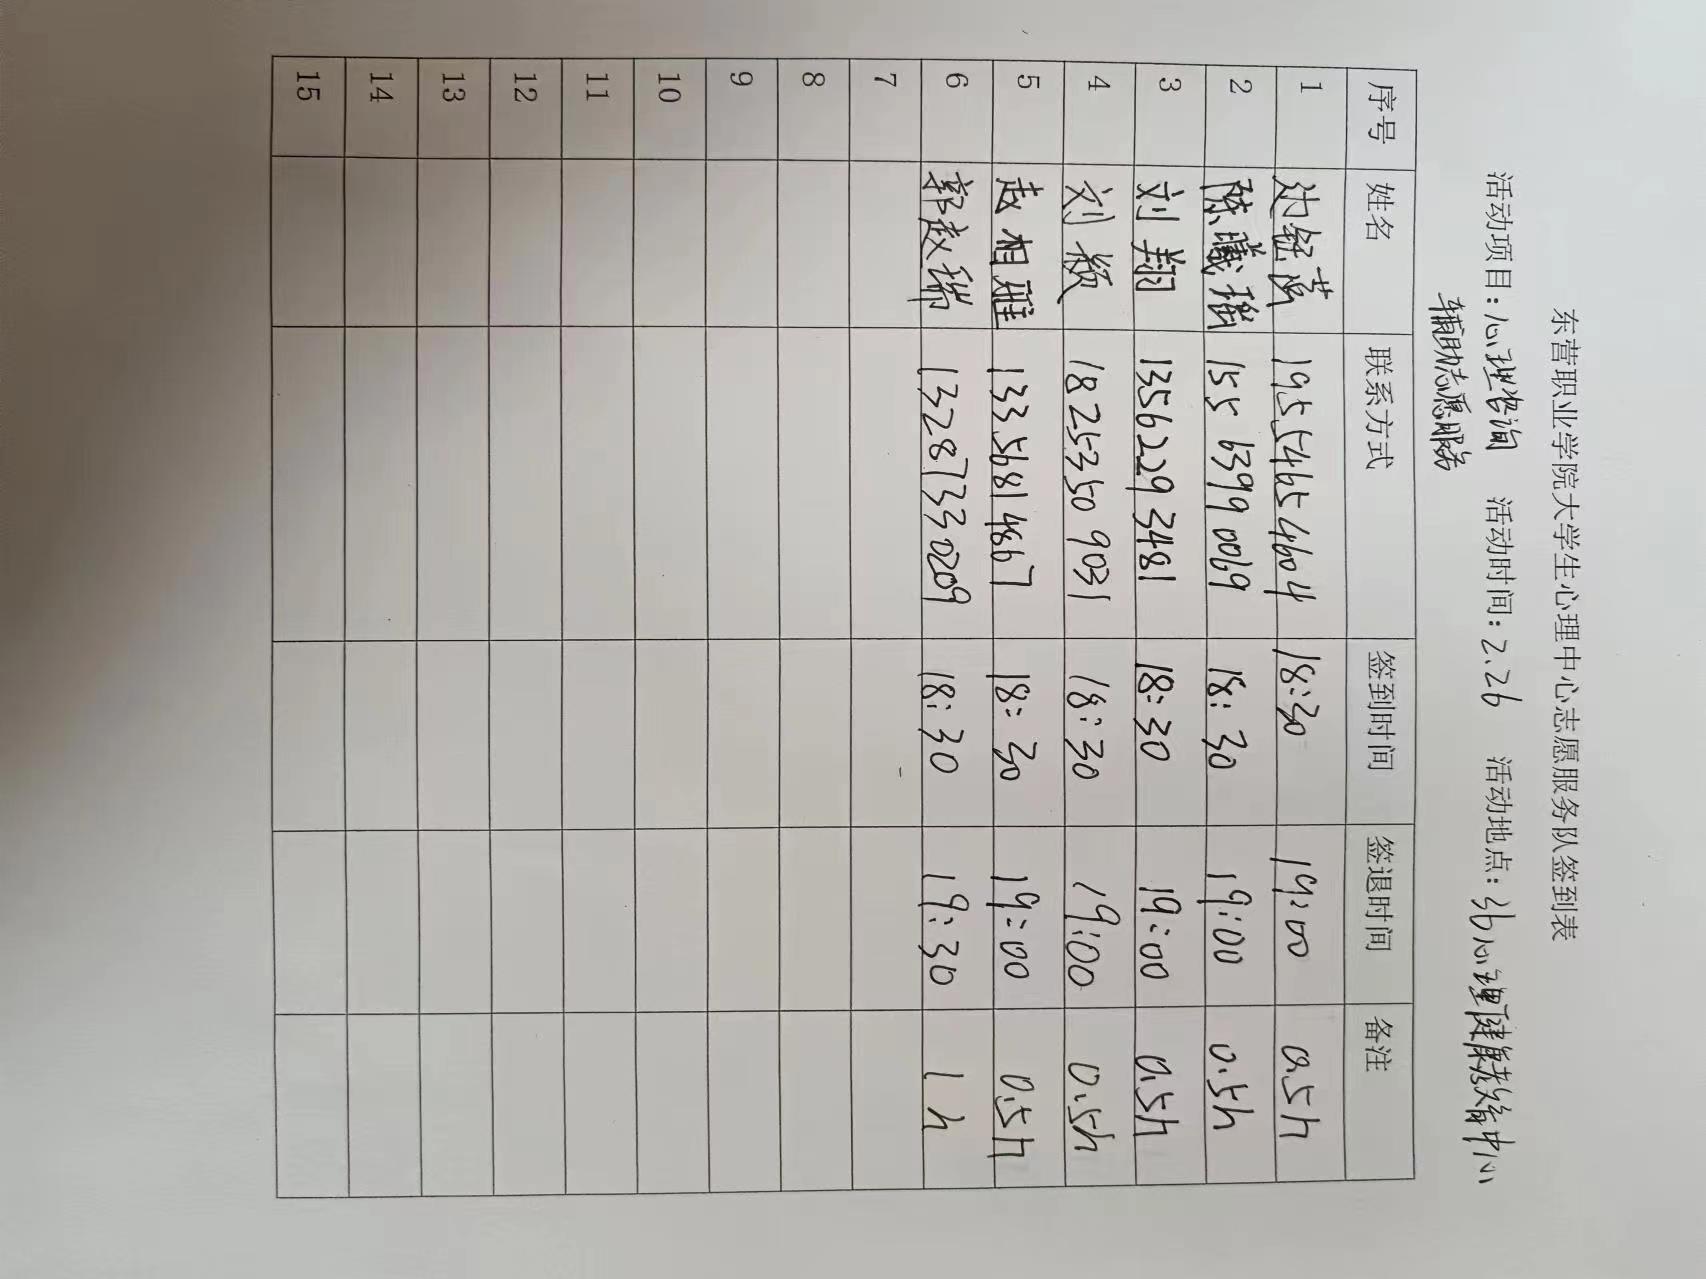 东营职业学院大学生心理中心志愿服务队签到表
活动项目：心理咨询 活动时间：2.26 活动地点：心理健康教育中心
辅助志愿服务
序号 姓名 联系方式 签到时间 签退时间 备注
1 19554654604 18:30 19:00 0.5h
2 陈曦 15563990069 18:30 19:00 0.5h
3 刘翔 13562293481 18:30 19:00 0.5h
4 刘颖 18253509031 18:30 19:00 0.5h
5 赵相雅 13356814867 18:30 19:00 0.5h
6 郭赵瑞 13287330209 18:30 19:30 1h
7
8
9
10
11
12
13
14
15